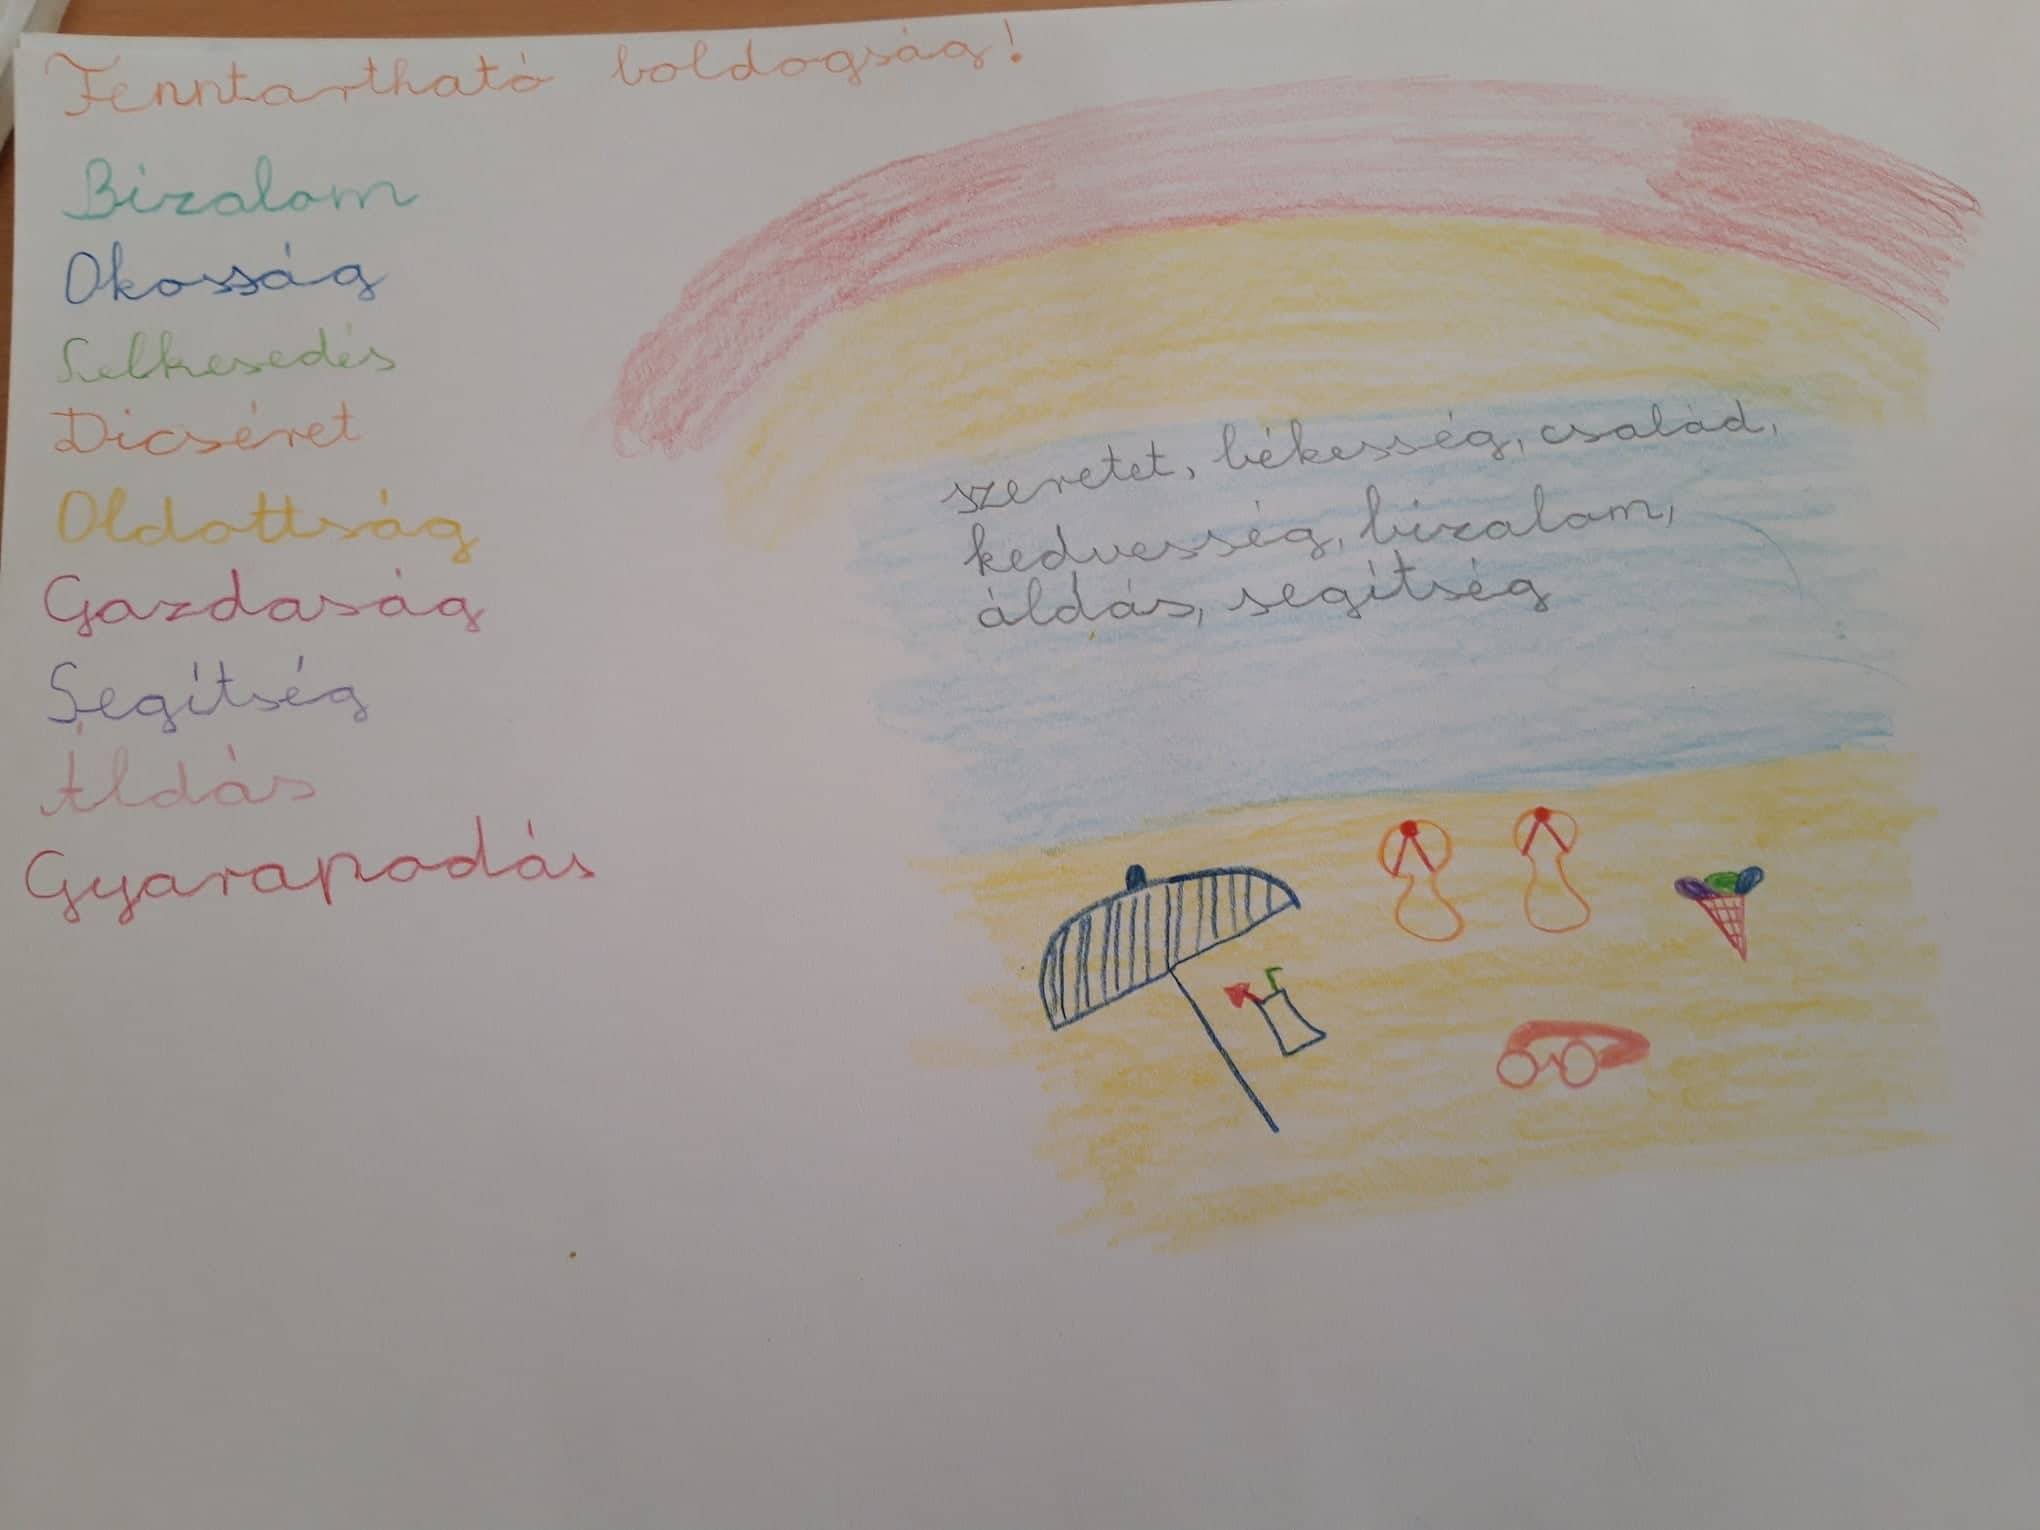 Fenntartható boldogság!
Bizalom
Okosság
Lelkesedés
Dicséret
Oldottság
Gazdaság
Segítség
Áldás
Gyarapodás
szeretet, békesség, család,
kedvesség, bizalom,
áldás, segítség